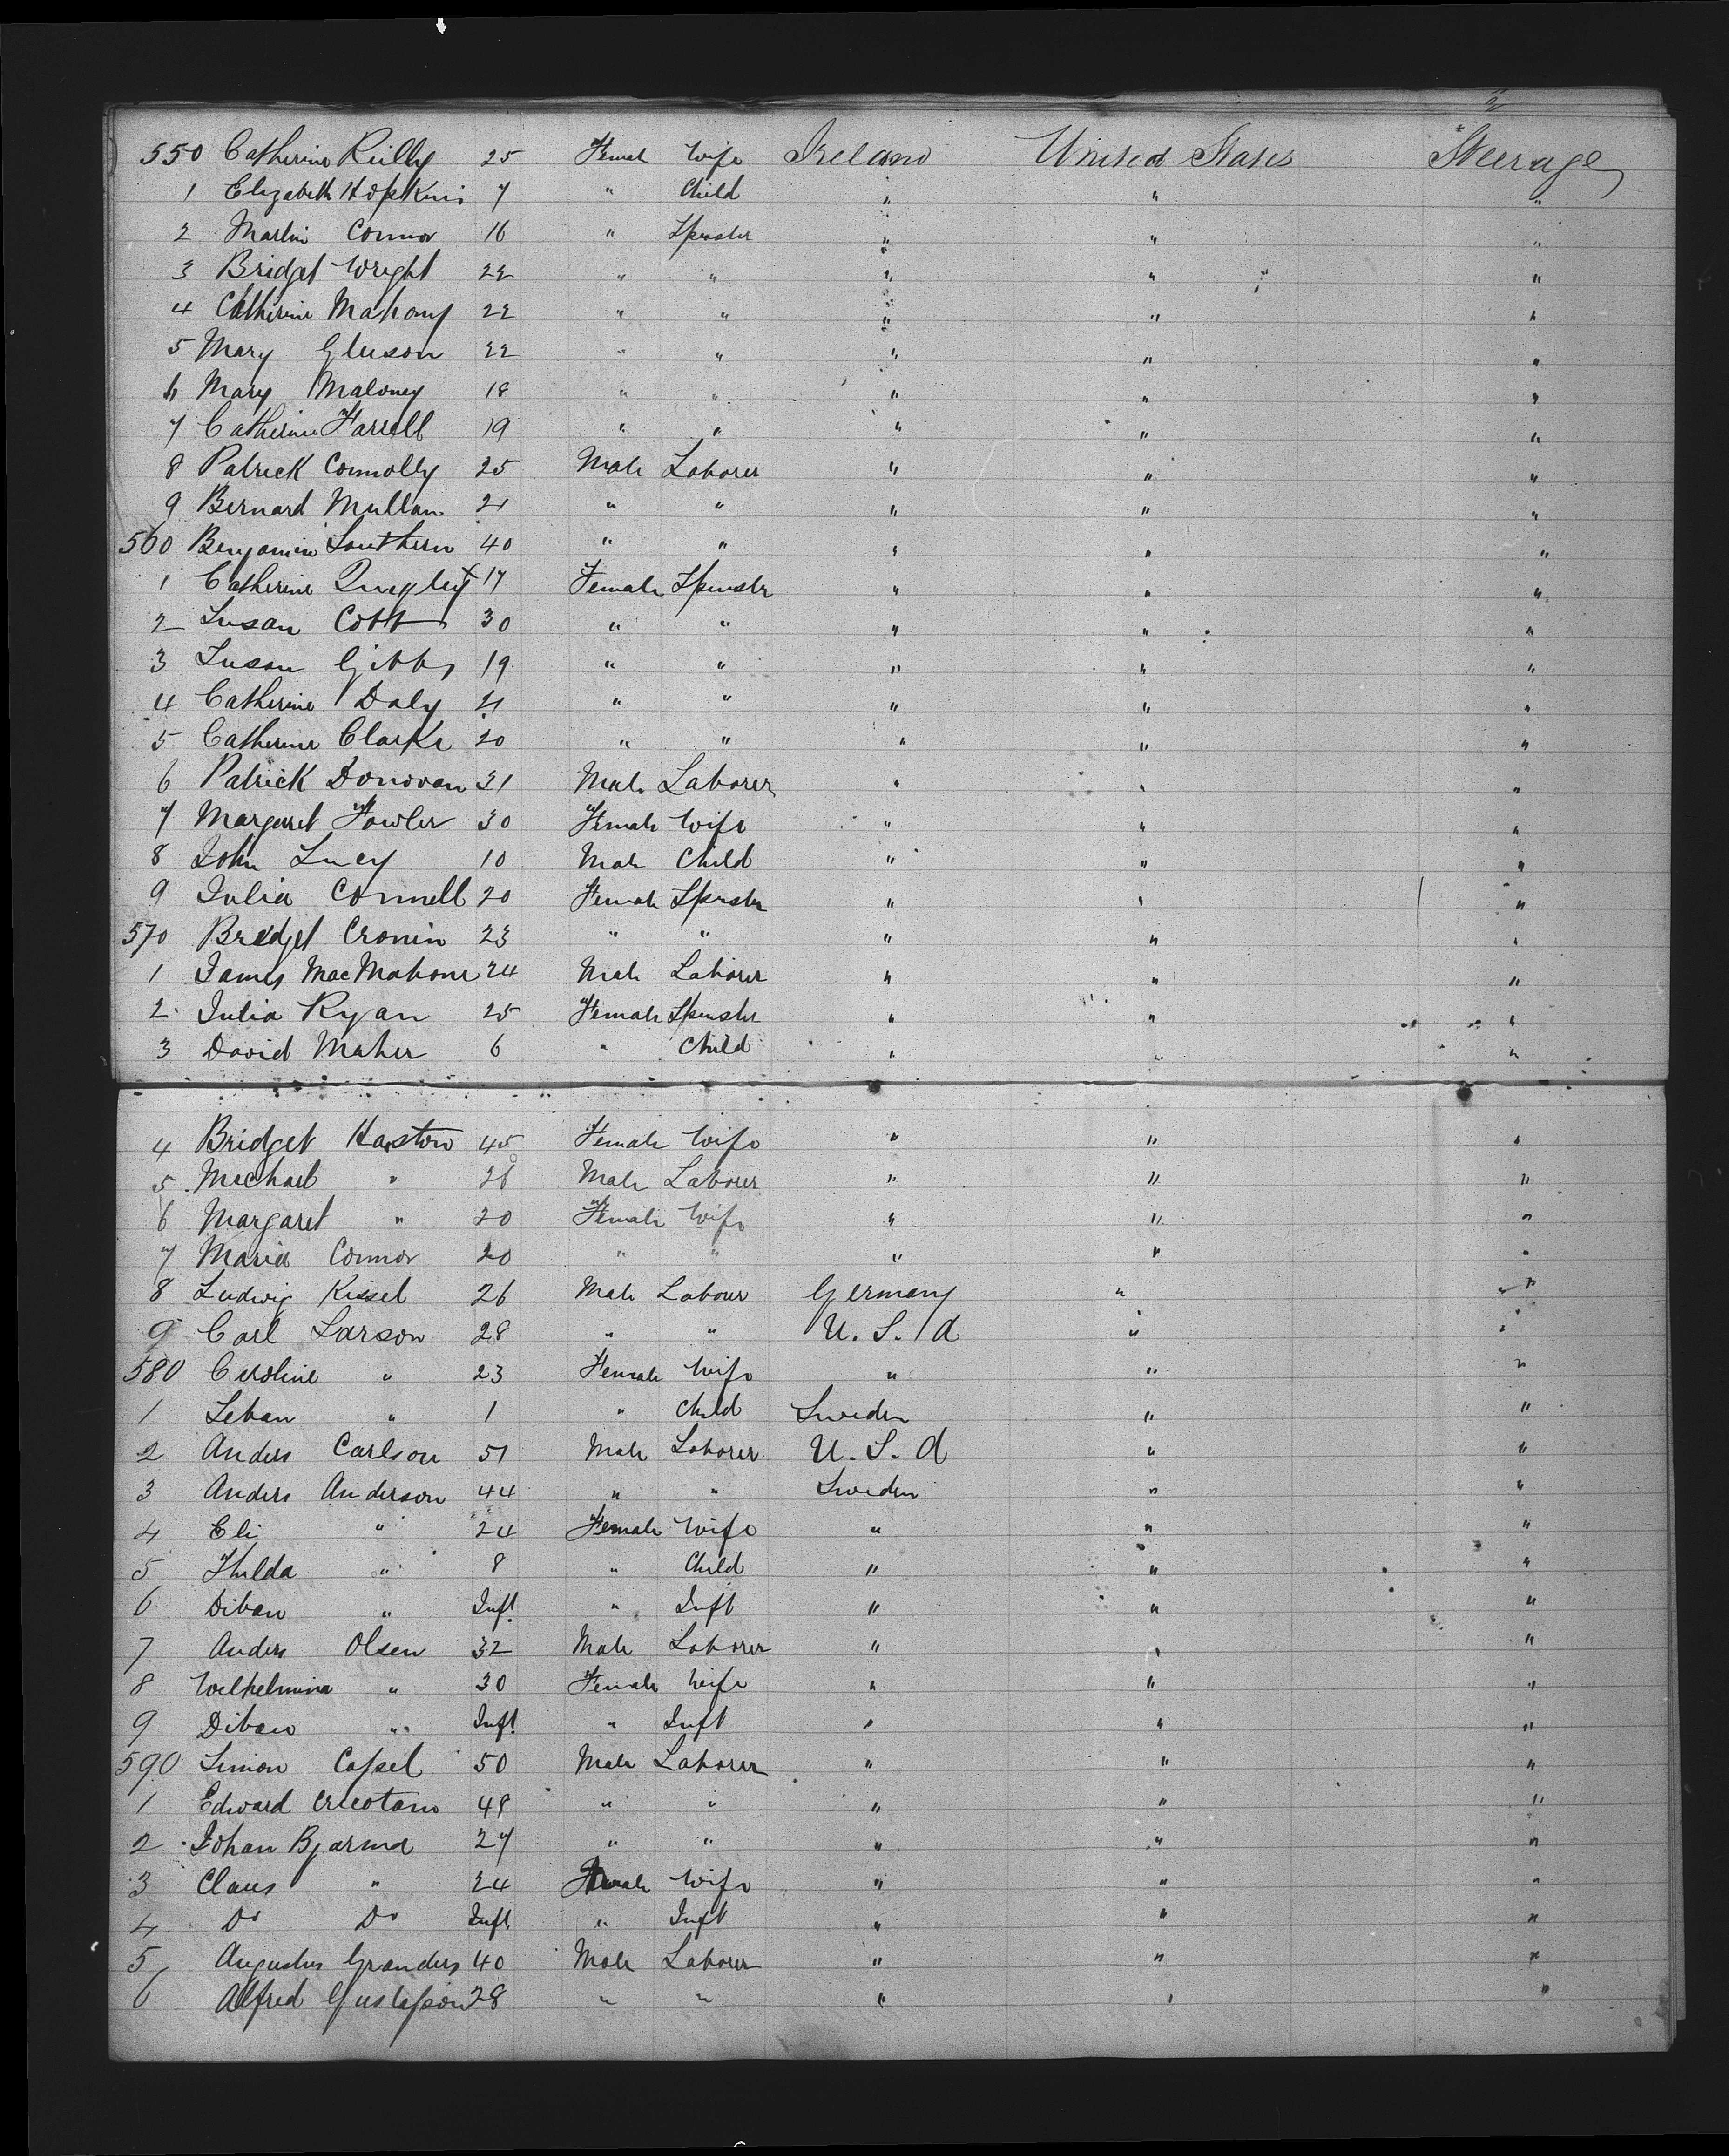 550 Catherine Reilly 25 Femal Wife Ireland United States Steerage
1 Elizabeth Hopkins 7 " Child " " "
2 Martin Connor 16 " Spinster " " "
3 Bridget Wright 22 " " " " "
4 Catherine Mahony 22 " " " " "
5 Mary Gleeson 22 " " " " "
6 Mary Maloney 18 " " " " "
7 Catherine Farrell 19 " " " " "
8 Patrick Connolly 25 Male Laborer " " "
9 Bernard Mullan 21 " " " " "
560 Benjamin Southern 40 " " " " "
1 Catherine Quigley x 17 Female Spinster " " "
2 Susan Cobb 30 " " " " "
3 Susan Gibbs 19 " " " " "
4 Catherine Daly 21 " " " " "
5 Catherine Clarke 20 " " " " "
6 Patrick Donovan 31 Male Laborer " " "
7 Margaret Fowler 30 Female Wife " " "
8 John Lucy 10 Male Child " " "
9 Julia Connell 20 Female Spinster " " "
570 Bridget Cronin 23 " " " " "
1 James MacMahone 24 Male Laborer " " "
2 Julia Ryan 25 Female Spinster " " "
3 David Maher 6 " Child " " "
4 Bridget Haston 45 Female Wife " " "
5 Michael " 26 Male Laborer " " "
6 Margaret " 20 Female Wife " " "
7 Maria Connor 20 " " " " "
8 Ludwig Kissel 26 Male Labourer Germany " "
9 Carl Larson 28 " " U. S. A " "
580 Caroline " 23 Female Wife " " "
1 Seban " 1 " Child Sweden " "
2 Anders Carlson 51 Male Laborer U. S. A " "
3 Anders Anderson 44 " " Sweden " "
4 Eli " 24 Female Wife " " "
5 Hulda " 8 " Child " " "
6 Diban " Inft " Inft " " "
7 Anders Olsen 32 Male Laborer " " "
8 Wilhelmina " 30 Female Wife " " "
9 Diban " Inft " Inft " " "
590 Simon Cassel 50 Male Laborer " " "
1 Edward 48 " " " " "
2 Johan Bjarma 27 " " " " "
3 Claus " 24 Female Wife " " "
4 Do Do Inft " Inft " " "
5 Augustus Granders 40 Male Laborer " " "
6 Alfred Gustafson 28 " " " " "